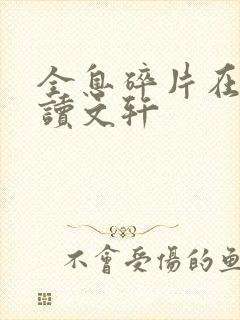 全息碎片在
讀文軒
不會受傷的魚